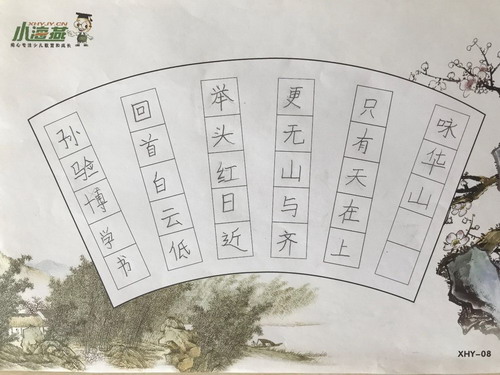 XHYJY.CN
小海燕
核心专注少儿教育和成长
咏华山
只有天在上
更无山与齐
举头红日近
回首白云低
孙骏博学书
XHY-08